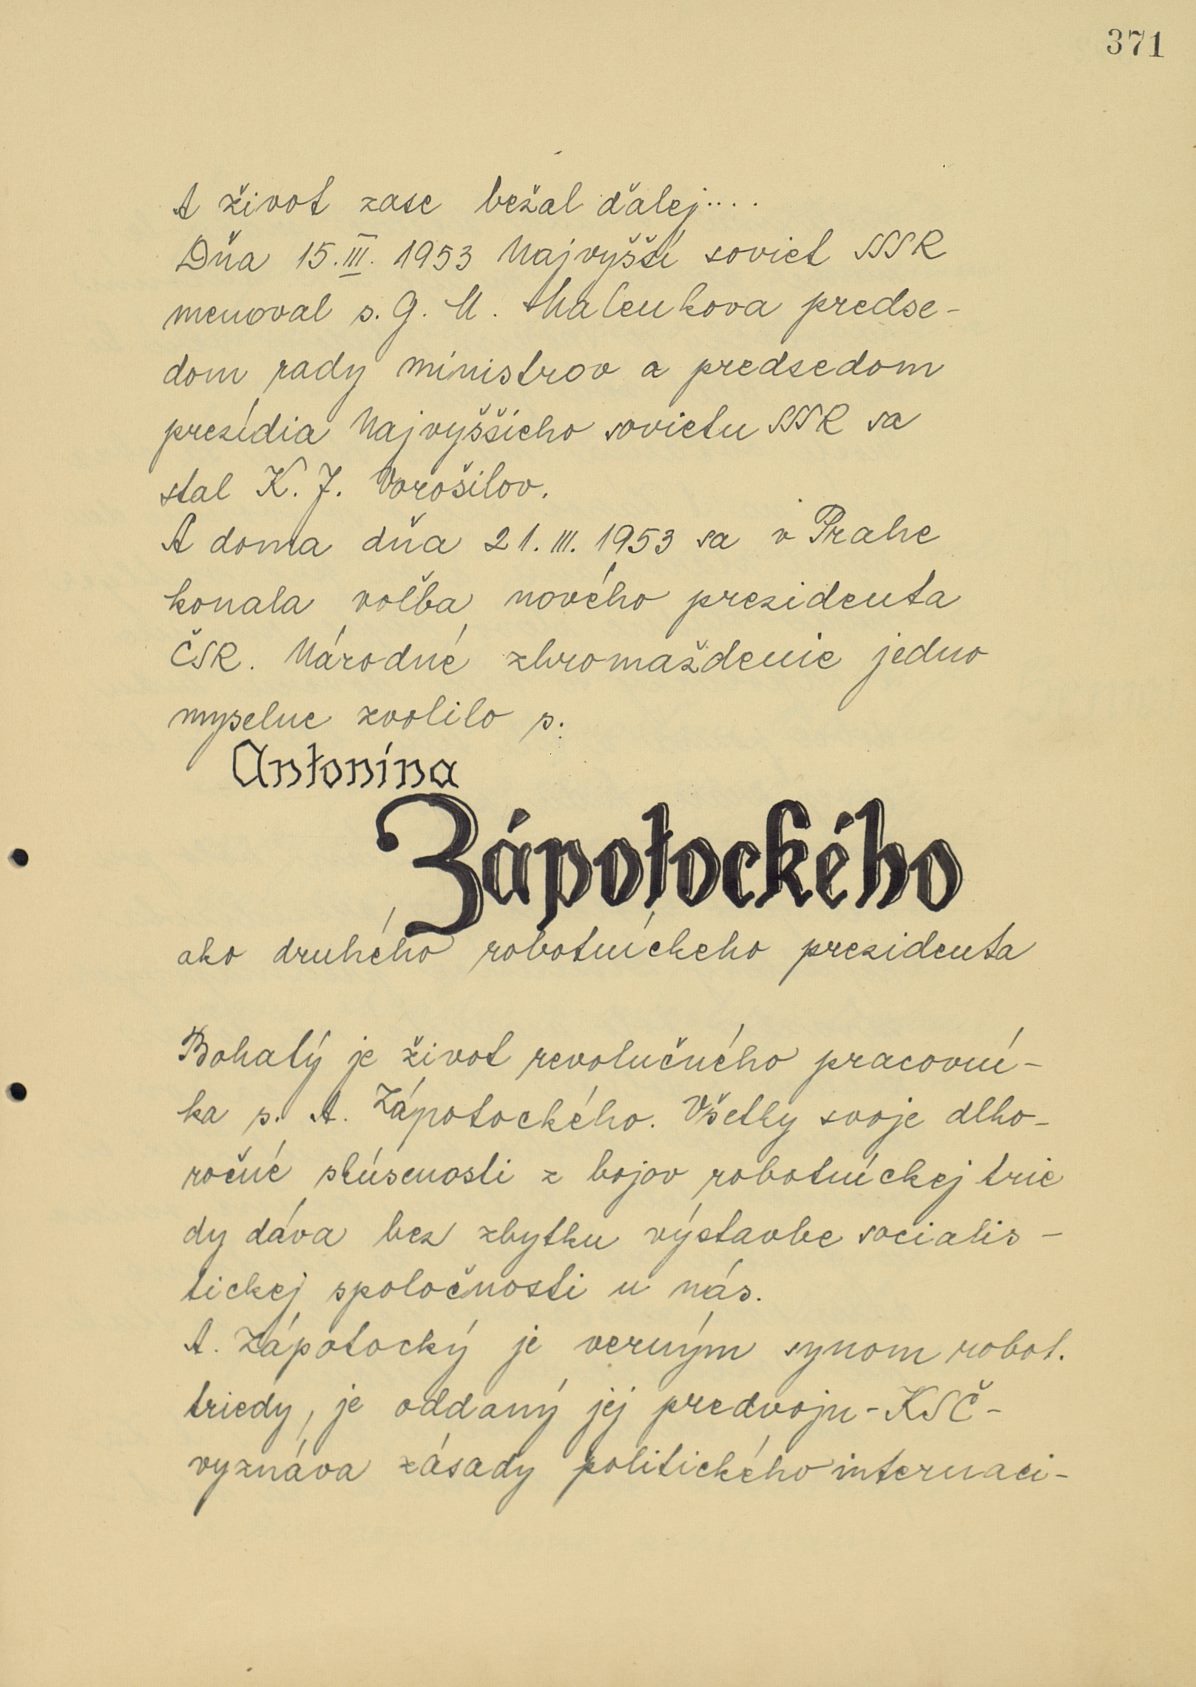 371
A život zase bežal ďalej....
Dňa 15. III. 1953 Najvyšší soviet SSSR
menoval s. G. M. Malenkova predse-
dom rady ministrov a predsedom
prezídia Najvyššieho sovietu SSSR sa
stal K. J. Vorošilov.
A doma dňa 21. III. 1953 sa v Prahe
konala voľba nového prezidenta
ČSR. Národné zhromaždenie jedno
myselne zvolilo s.
Antonína
Zápotockého
ako druhého robotníckeho prezidenta
Bohatý je život revolučného pracovní-
ka s. A. Zápotockého. Všetky svoje dlho-
ročné skúsenosti z bojov robotníckej trie
dy dáva bez zbytku výstavbe socialis-
tickej spoločnosti u nás.
A. Zápotocký je verným synom robot.
triedy, je oddaný jej predvoju - KSČ -
vyznáva zásady politického internaci-